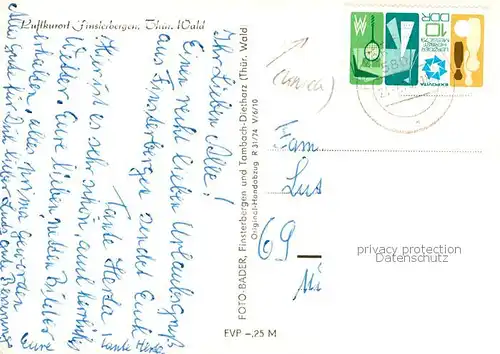 Luftkurort Finsterbergen, Thür. Wald
Ihr Lieben Alle!
Eine recht lieben Urlaubsgruß
aus Finsterbergen sendet Euch
Tante Herta,
Hier ist es sehr schön auch herrliche
Wälder. Eure lieben netten Bilder
erhalten, alles prima geworden
Alles Gute für Dich lieber Lutz, gute Besserung
Eure Tante Herta
FOTO-BADER, Finsterbergen und Tambach-Dietharz (Thür. Wald
Original-Handabzug R 31/74 V/6/10
EVP –,25 M
DDR
10
Fam
Lus
69
privacy protection
Datenschutz